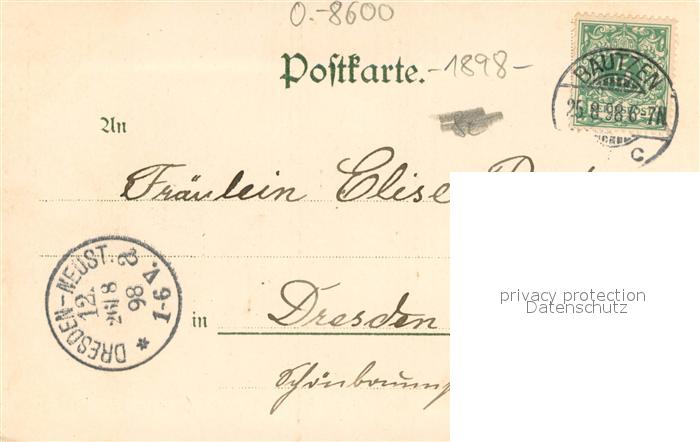 O.-8600
Postkarte.
-1898-
BAUTZEN
25 8 98 6-7N
c
An
Fräulein Elise
DRESDEN-NEUST. 2
12.
8
98
9-1 V.
in
Dresden
privacy protection
Datenschutz